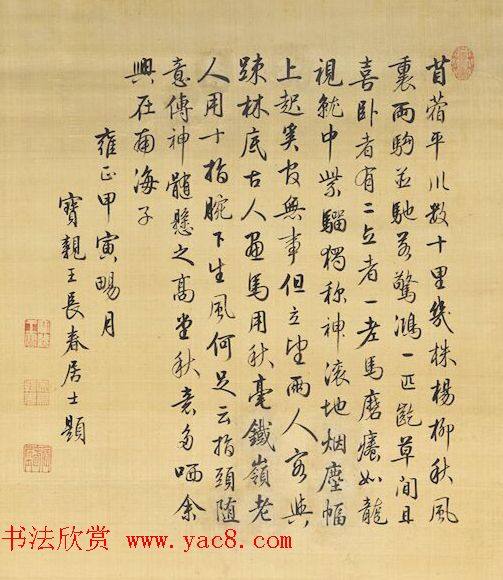 苜蓿平川数十里幾株楊柳秋風
裏兩駒並馳若驚鴻一匹齕草間且
喜卧者有二立者一老馬磨癢如龍
視就中紫騮獨称神滚地烟塵幅
上起奚官無事但立望兩人與
踈林底古人画馬用秋毫鐵嶺老
人用十指腕下生風何足云指頭随
意傳神髓懸之高堂秋意多哂余
興在南海子
雍正甲寅暢月
寶親王長春居士題
书法欣赏 www.yac8.com